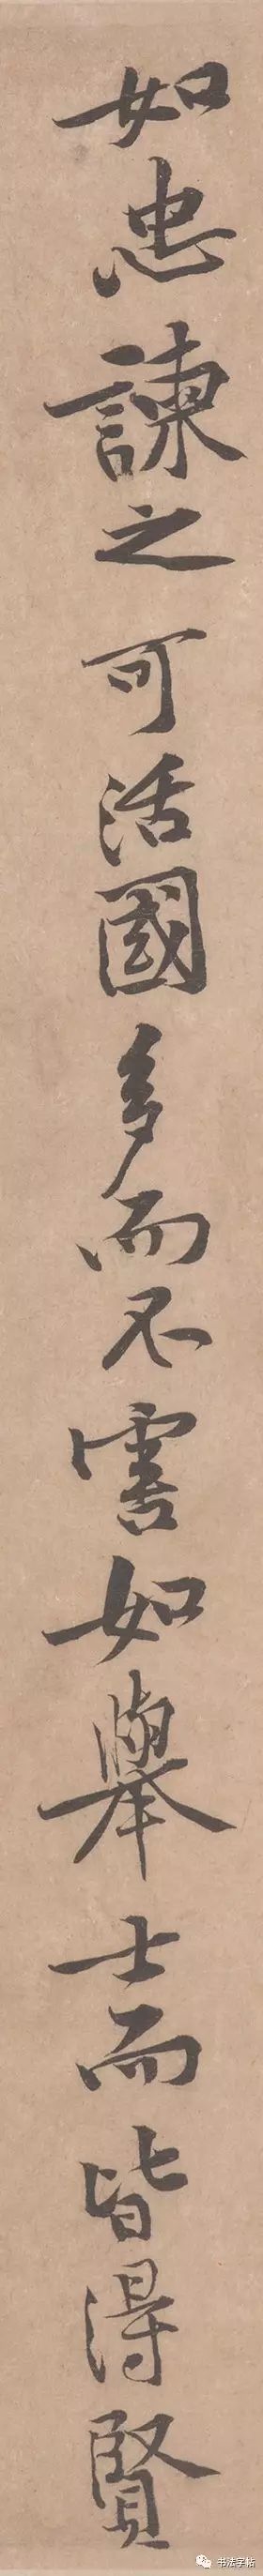 如忠諫之可活國多而不害如舉士而皆得賢
书法字帖